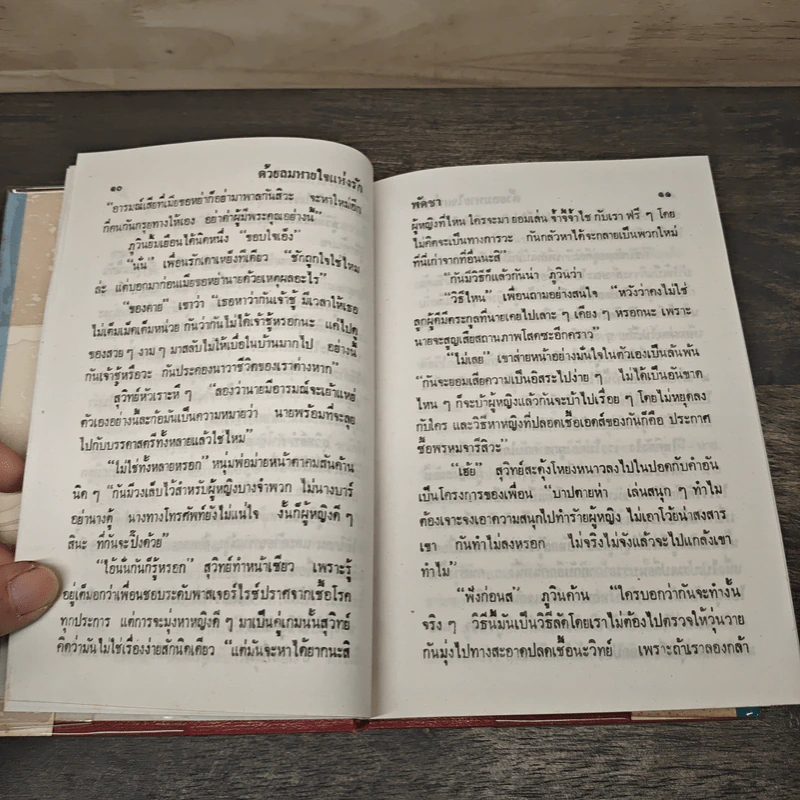 ๑๐
ด้วยลมหายใจแห่งรัก
"อารมณ์เสียที่เมือขอหย่าก็อย่ามาพาลกันสิวะ จะหาใหม่อีก
กี่คนกันกรุยทางให้เอง อย่าด่าผู้มีพระคุณอย่างนี้"
ภูวินยิ้มเยือนได้นิดหนึ่ง "ขอบใจเอ็ง"
"นั่น" เพื่อนรักเดาเหยงทีเดียว "ชักถูกใจใช่ไหม
ล่ะ แต่บอกมาก่อนเมียขอหย่านายด้วยเหตุผลอะไร"
"ของตาย" เขาว่า "เธอหาว่ากันเจ้าชู้ มีเวลาให้เธอ
ไม่เต็มเม็ดเต็มหน่วย กันว่ากันไม่ได้เจ้าชู้หรอกนะ แต่ไปดู
ของสวย ๆ งาม ๆ มาสลับไม่ให้เบื่อในบ้านมากไป อย่างนี้
กันเจ้าชู้หรือวะ กันประคองนาวาชีวิตของเราต่างหาก"
สุวิทย์หัวเราะหึ ๆ "ลองว่านายมีอารมณ์จะเย้าแหย่
ตัวเองอย่างนี้ละก้อมันเป็นความหมายว่า นายพร้อมที่จะลุย
ไปกับบรรดาสตรีทั้งหลายแล้วใช่ไหม"
"ไม่ใช่ทั้งหลายหรอก" หนุ่มพ่อม่ายหน้าตาคมสันค้าน
นิด ๆ "กันมีวงเล็บไว้สำหรับผู้หญิงบางจำพวก ไม่นางบาร์
อย่านางตู้ นางทางโทรศัพท์ยังไม่แน่ใจ งั้นก็ผู้หญิงดี ๆ
สินะ ที่กันจะปิ๊งด้วย"
"ไอ้นั่นกันก็รู้หรอก" สุวิทย์ทำหน้าเซียว เพราะรู้
อยู่เต็มอกว่าเพื่อนชอบระดับพาสเจอร์ไรซ์ปราศจากเชื้อโรค
ทุกประการ แต่การจะมุ่งหาหญิงดี ๆ มาเป็นคู่เกมนั้นสุวิทย์
คิดว่ามันไม่ใช่เรื่องง่ายสักนิดเดียว "แต่มันจะหาได้ยากนะสิ
พัดชา
๑๑
ผู้หญิงที่ไหน ใครจะมา ยอมเล่น จ้ำจี้จ้ำไช กับเรา ฟรี ๆ โดย
ไม่คิดจะเป็นทางการวะ กันกลัวหาได้จะกลายเป็นพวกใหม่
ที่นี่เก่าจากที่อื่นนะสิ"
"กันมีวิธีก็แล้วกันน่า ภูวินว่า
"วิธีไหน" เพื่อนถามอย่างสนใจ "หวังว่าคงไม่ใช่
ลูกผู้ดีมีตระกูลที่นายเคยไปเลาะ ๆ เคียง ๆ หรอกนะ เพราะ
นายจะสูญเสียสถานภาพโสดซะอีกคราว"
"ไม่เลย" เขาส่ายหน้าอย่างมั่นใจในตัวเองเป็นล้นพ้น
"กันจะยอมเสียความเป็นอิสระไปง่าย ๆ ไม่ได้เป็นอันขาด
ไหน ๆ ก็จะบ้าผู้หญิงแล้วกันจะบ้าไปเรื่อย ๆ โดยไม่หยุดลง
กับใคร และวิธีหาผู้หญิงที่ปลอดเชื้อเอดส์ของกันก็คือ ประกาศ
ซื้อพรหมจารีสิวะ"
"เฮ้ย" สุวิทย์สะดุ้งโหยงหนาวลงไปในปอดกับคำอัน
เป็นโครงการของเพื่อน "บาปตายห่า เล่นสนุก ๆ ทำไม
ต้องเจาะจงเอาความสนุกไปทำร้ายผู้หญิง ไม่เอาโว้ยน่าสงสาร
เขา กันทำไม่ลงหรอก ไม่จริงไม่จังแล้วจะไปแกล้งเขา
ทำไม"
"ฟังก่อนส ภูวินค้าน "ใครบอกว่ากันจะทำงั้น
จริง ๆ วิธีนี้มันเป็นวิธีลัดโดยเราไม่ต้องไปตรวจให้วุ่นวาย
กันมุ่งไปทางสะอาดปลดเชื้อนะวิทย์ เพราะถ้าเราลองกล้า